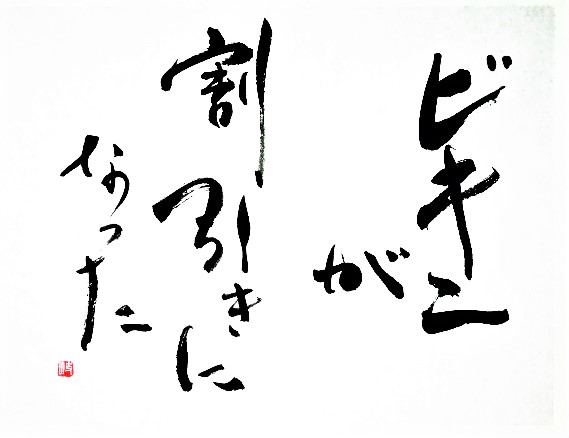 ビキニ
が
割引きに
なった